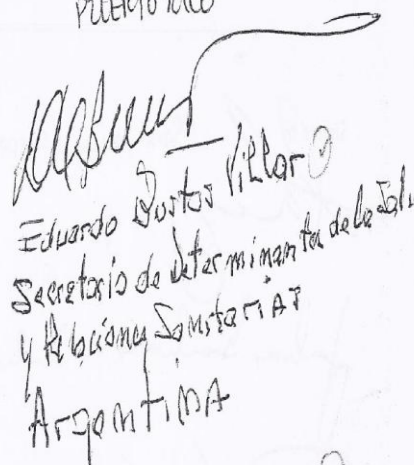 PUERTO RICO
Eduardo Bustos Villar
Secretario de Determinantes de la Sal.
y Relaciones Sanitarias
Argentina